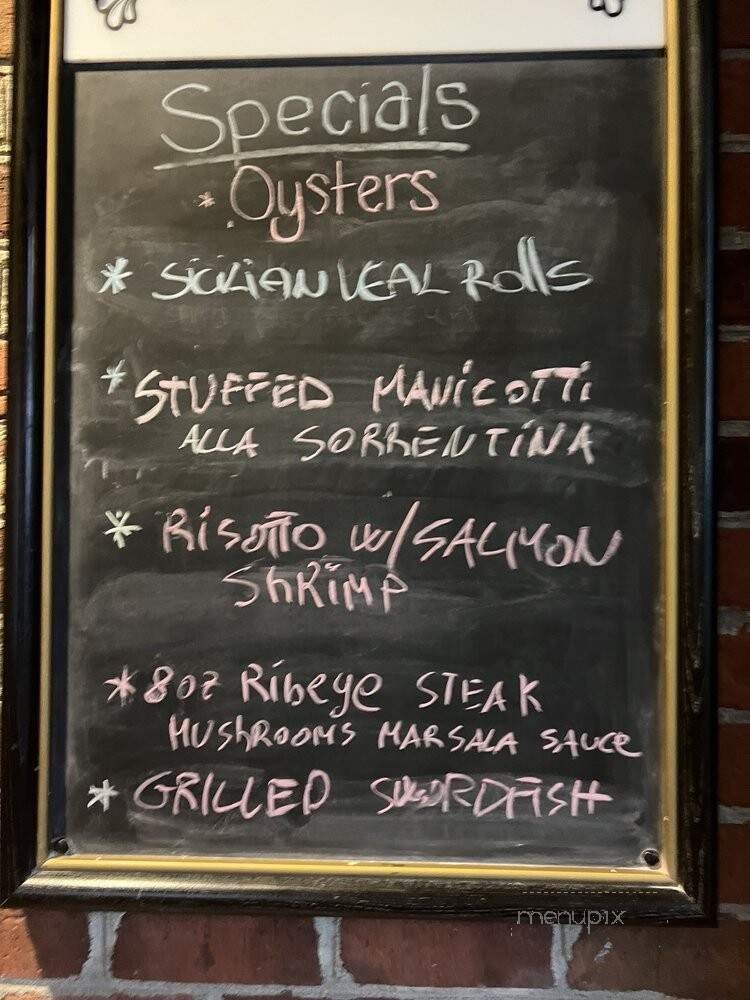 Specials
* Oysters
* SiCiLiAN VEAL Rolls
* STUFFED MANiCOTTi
ALLA SORRENTiNA
* RiSOTTO w/SALMON
ShRiMP
* 8oz Ribeye STEAK
MUShROOMS MARSALA SAUCe
* GRILLED SWORDFISH
menupix